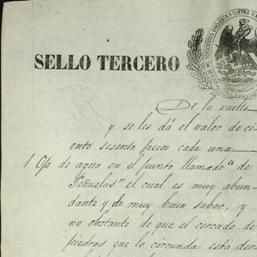 SELLO TERCERO
De la vuelta
y se les dá el valor de ci-
ento sesenta pesos cada una
1 Ojo de agua en el punto llamado "de
Peñuelas" el cual es muy abun-
dante y de muy buen sabor, y
no obstante de que el cercado de
piedras que lo circunda está der-